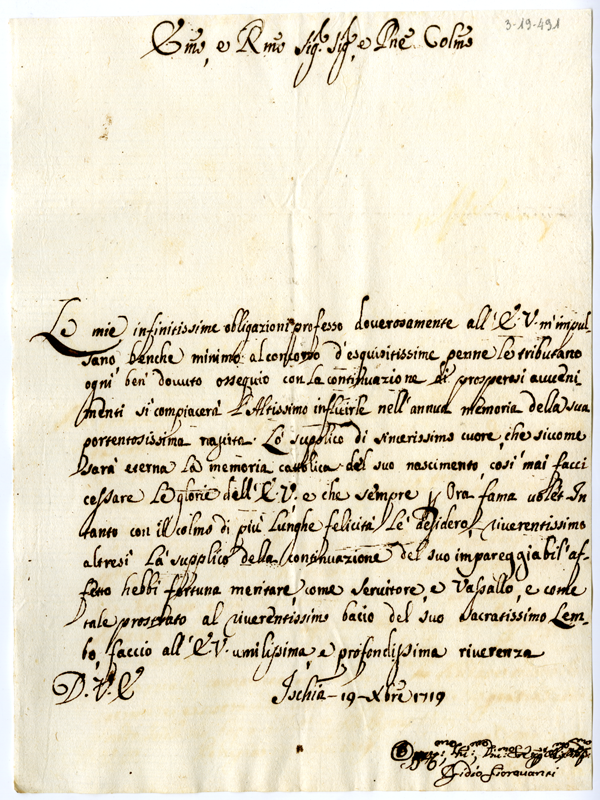 3-19-491
Emo, e Rmo Sigr. Sigr, e Pne Colmo
Le mie infinitissime obligazioni professo doverosamente all' E.V. m'impul-
sano benche minimo al concorso d'esquisitissime penne le tributano
ogni ben dovuto ossequio con la continuazione di prosperosi avveni
menti si compiacerà l'Altissimo influirle nell'annua memoria della sua
portentosissima nascita. Lo supplico di sincerissimo cuore, che sicome
sarà eterna la memoria cattolica del suo nascimento, così mai facci
cessare le glorie dell'E.V. e che sempre Ora fama volet. In
tanto con il colmo di più lunghe felicità le desidero, riverentissimo
altresi la supplico della continuazione del suo impareggiabil'af-
fetto hebbi fortuna meritare, come servitore, e Vassallo, e come
tale prostrato al riverentissimo bacio del suo sacratissimo Lem-
bo, faccio all'E.V. umilissima, e profondissima riverenza
D. V. E. Ischia - 19 - Xbre 1719
Fidio Fioravanti